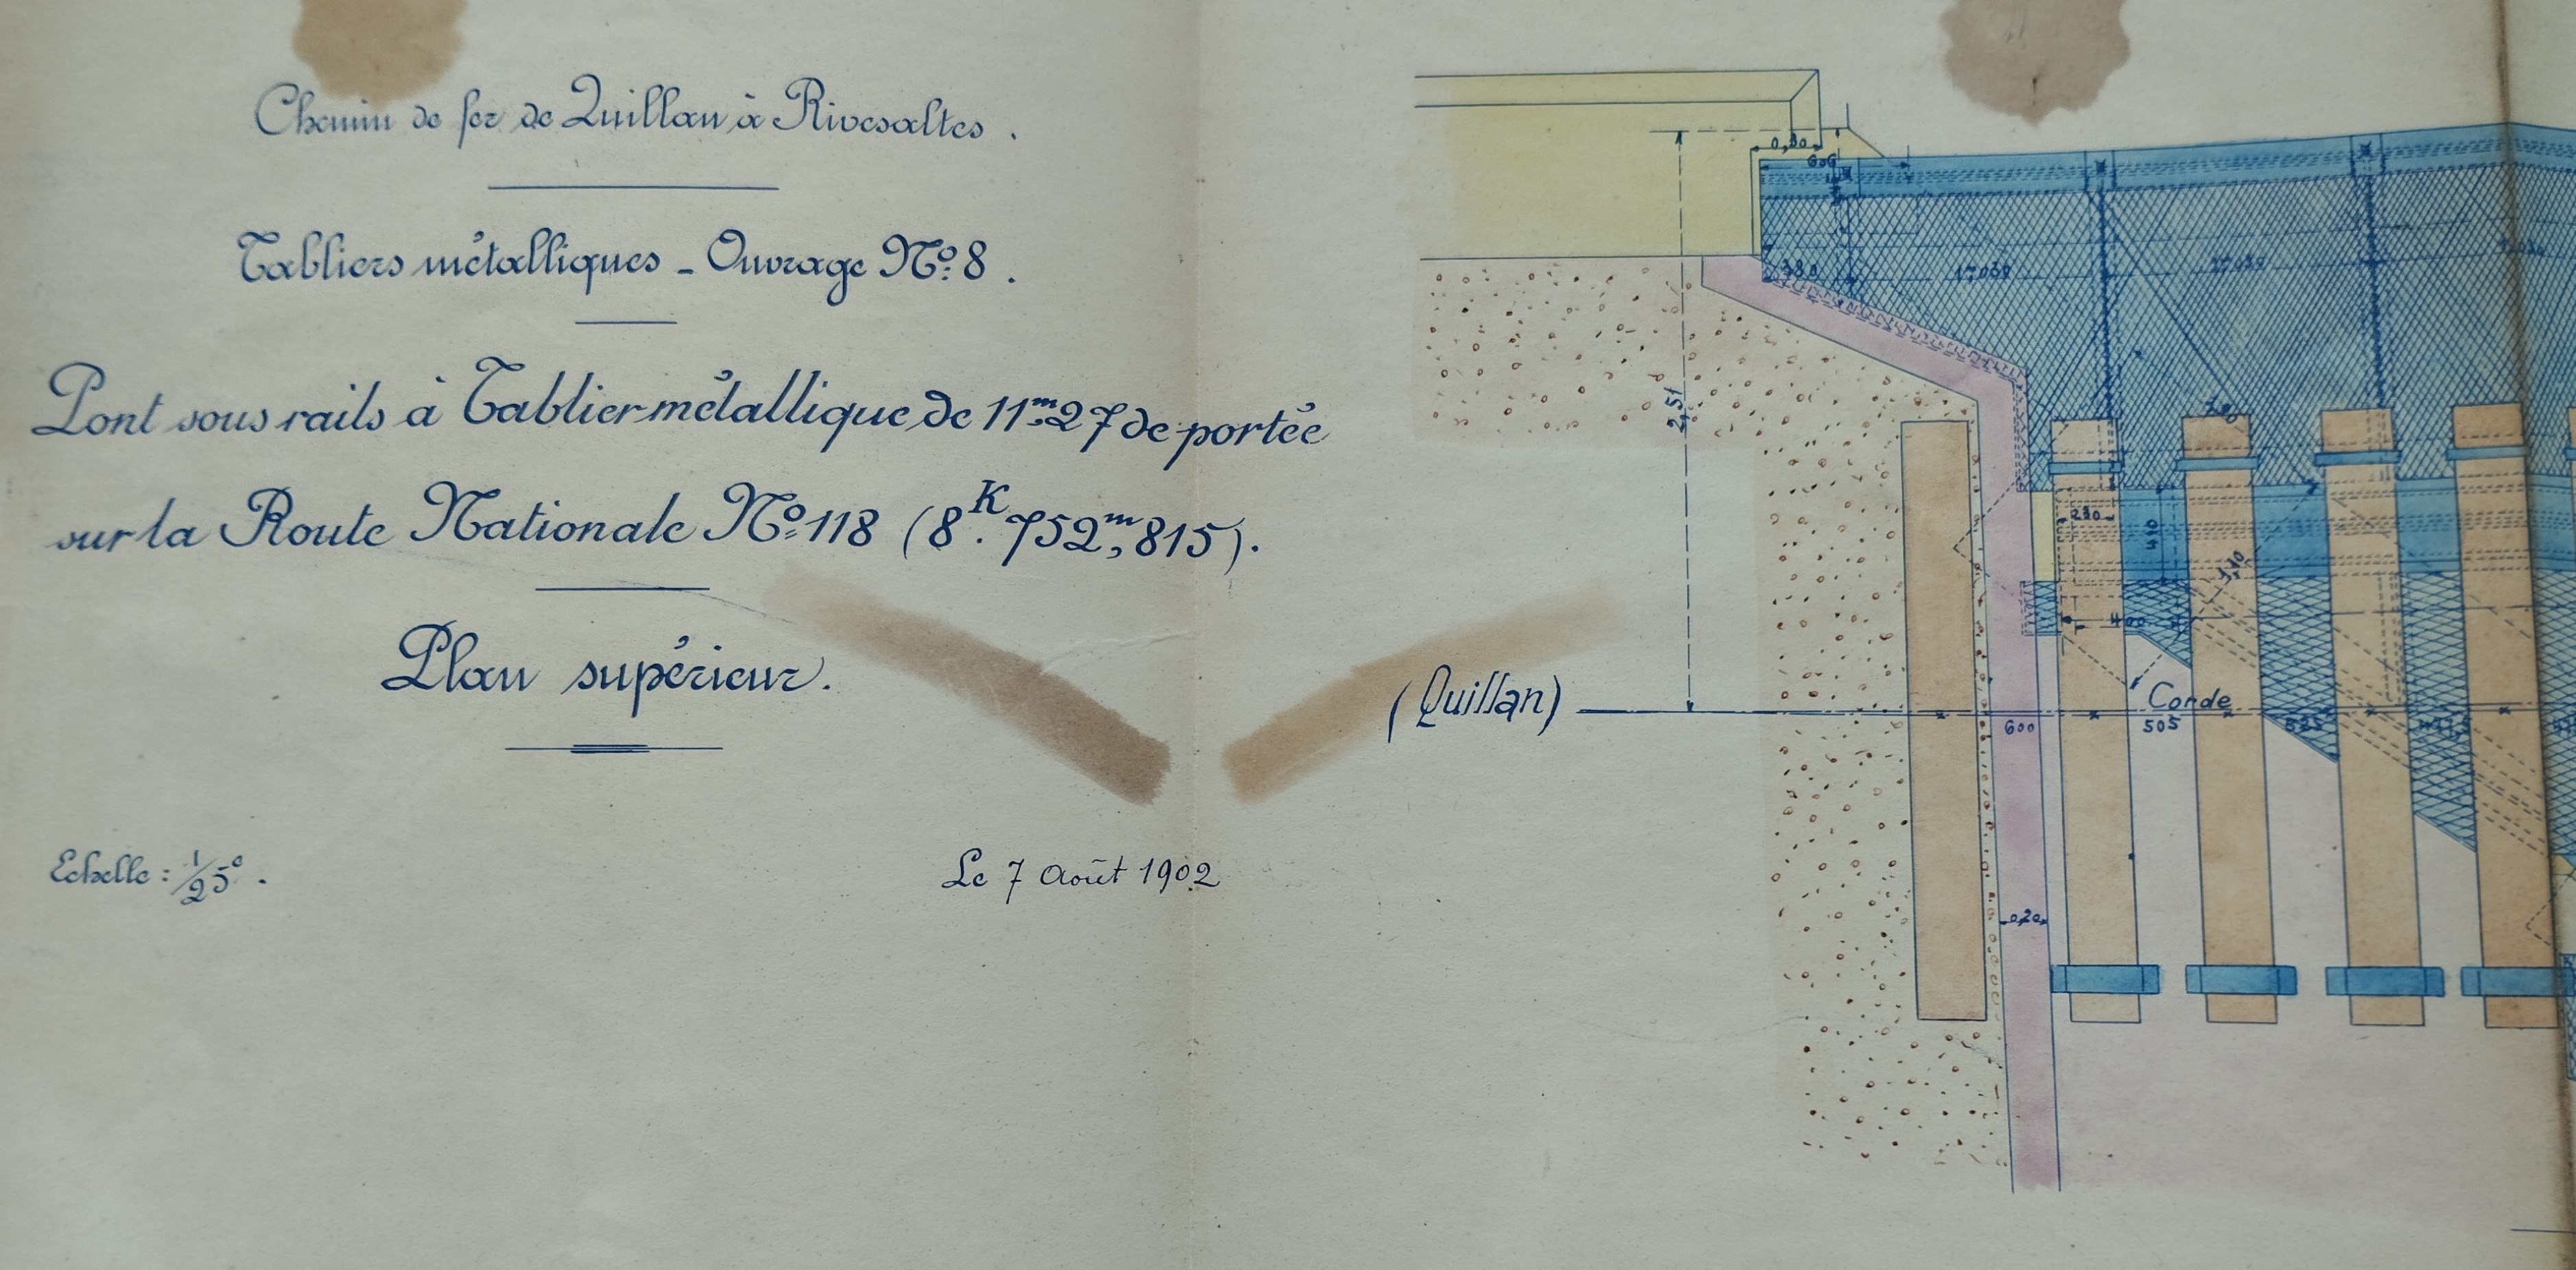 Chemin de fer de Quillan à Rivesaltes.
Tabliers métalliques - Ouvrage Nº 8.
Pont sous rails à Tablier métallique de 11m,27 de portée
sur la Route Nationale Nº 118 (8K.752m,815).
Plan supérieur.
Echelle : 1/25e.
Le 7 Août 1902
(Quillan)
0,30
606
380
2,51
230
410
1,10
400
Corde
600
505
525
0,20